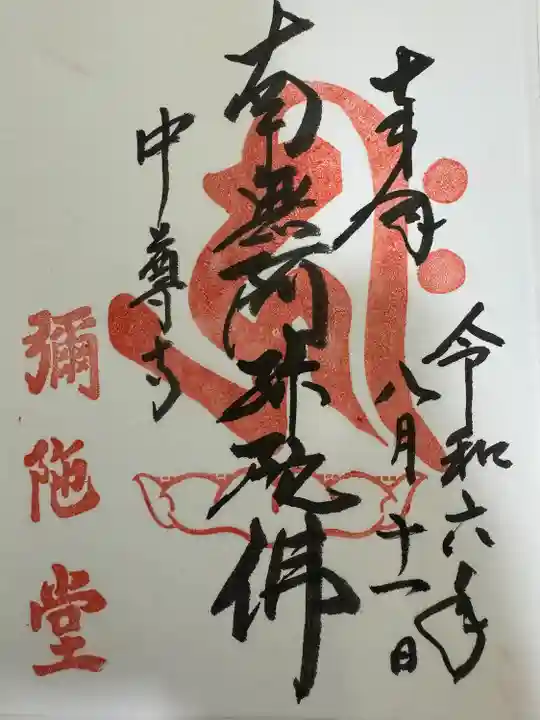 令和六年
八月十一日
奉拝
南無阿弥陀佛
中尊寺
彌陀堂